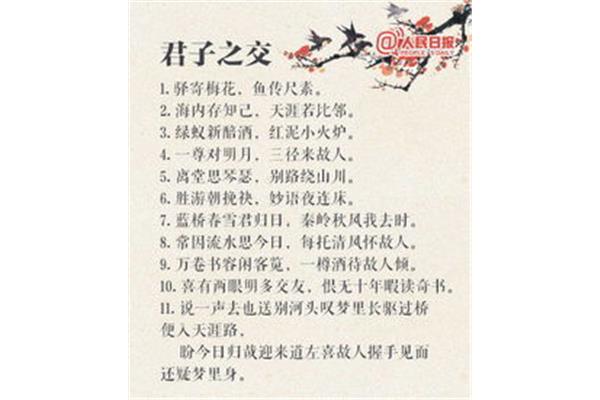 @人民日报
PEOPLE'S DAILY
君子之交
1. 驿寄梅花，鱼传尺素。
2. 海内存知己，天涯若比邻。
3. 绿蚁新醅酒，红泥小火炉。
4. 一尊对明月，三径来故人。
5. 离堂思琴瑟，别路绕山川。
6. 胜游朝挽袂，妙语夜连床。
7. 蓝桥春雪君归日，秦岭秋风我去时。
8. 常因流水思今日，每托清风怀故人。
9. 万卷书容闲客览，一樽酒待故人倾。
10. 喜有两眼明多交友，恨无十年暇读奇书。
11. 说一声去也送别河头叹梦里长驱过桥
便入天涯路，
盼今日归哉迎来道左喜故人握手见面
还疑梦里身。